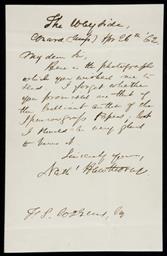 The Wayside,
Concord (Mass.) Apr 26th '62
My dear Sir,
Here is the photograph
which you wished me to
send. I forget whether
you promised me that of
the brilliant author of the
Sparrowgrass Papers, but
I should be very glad
to have it.
Sincerely Yours,
Nathl Hawthorne